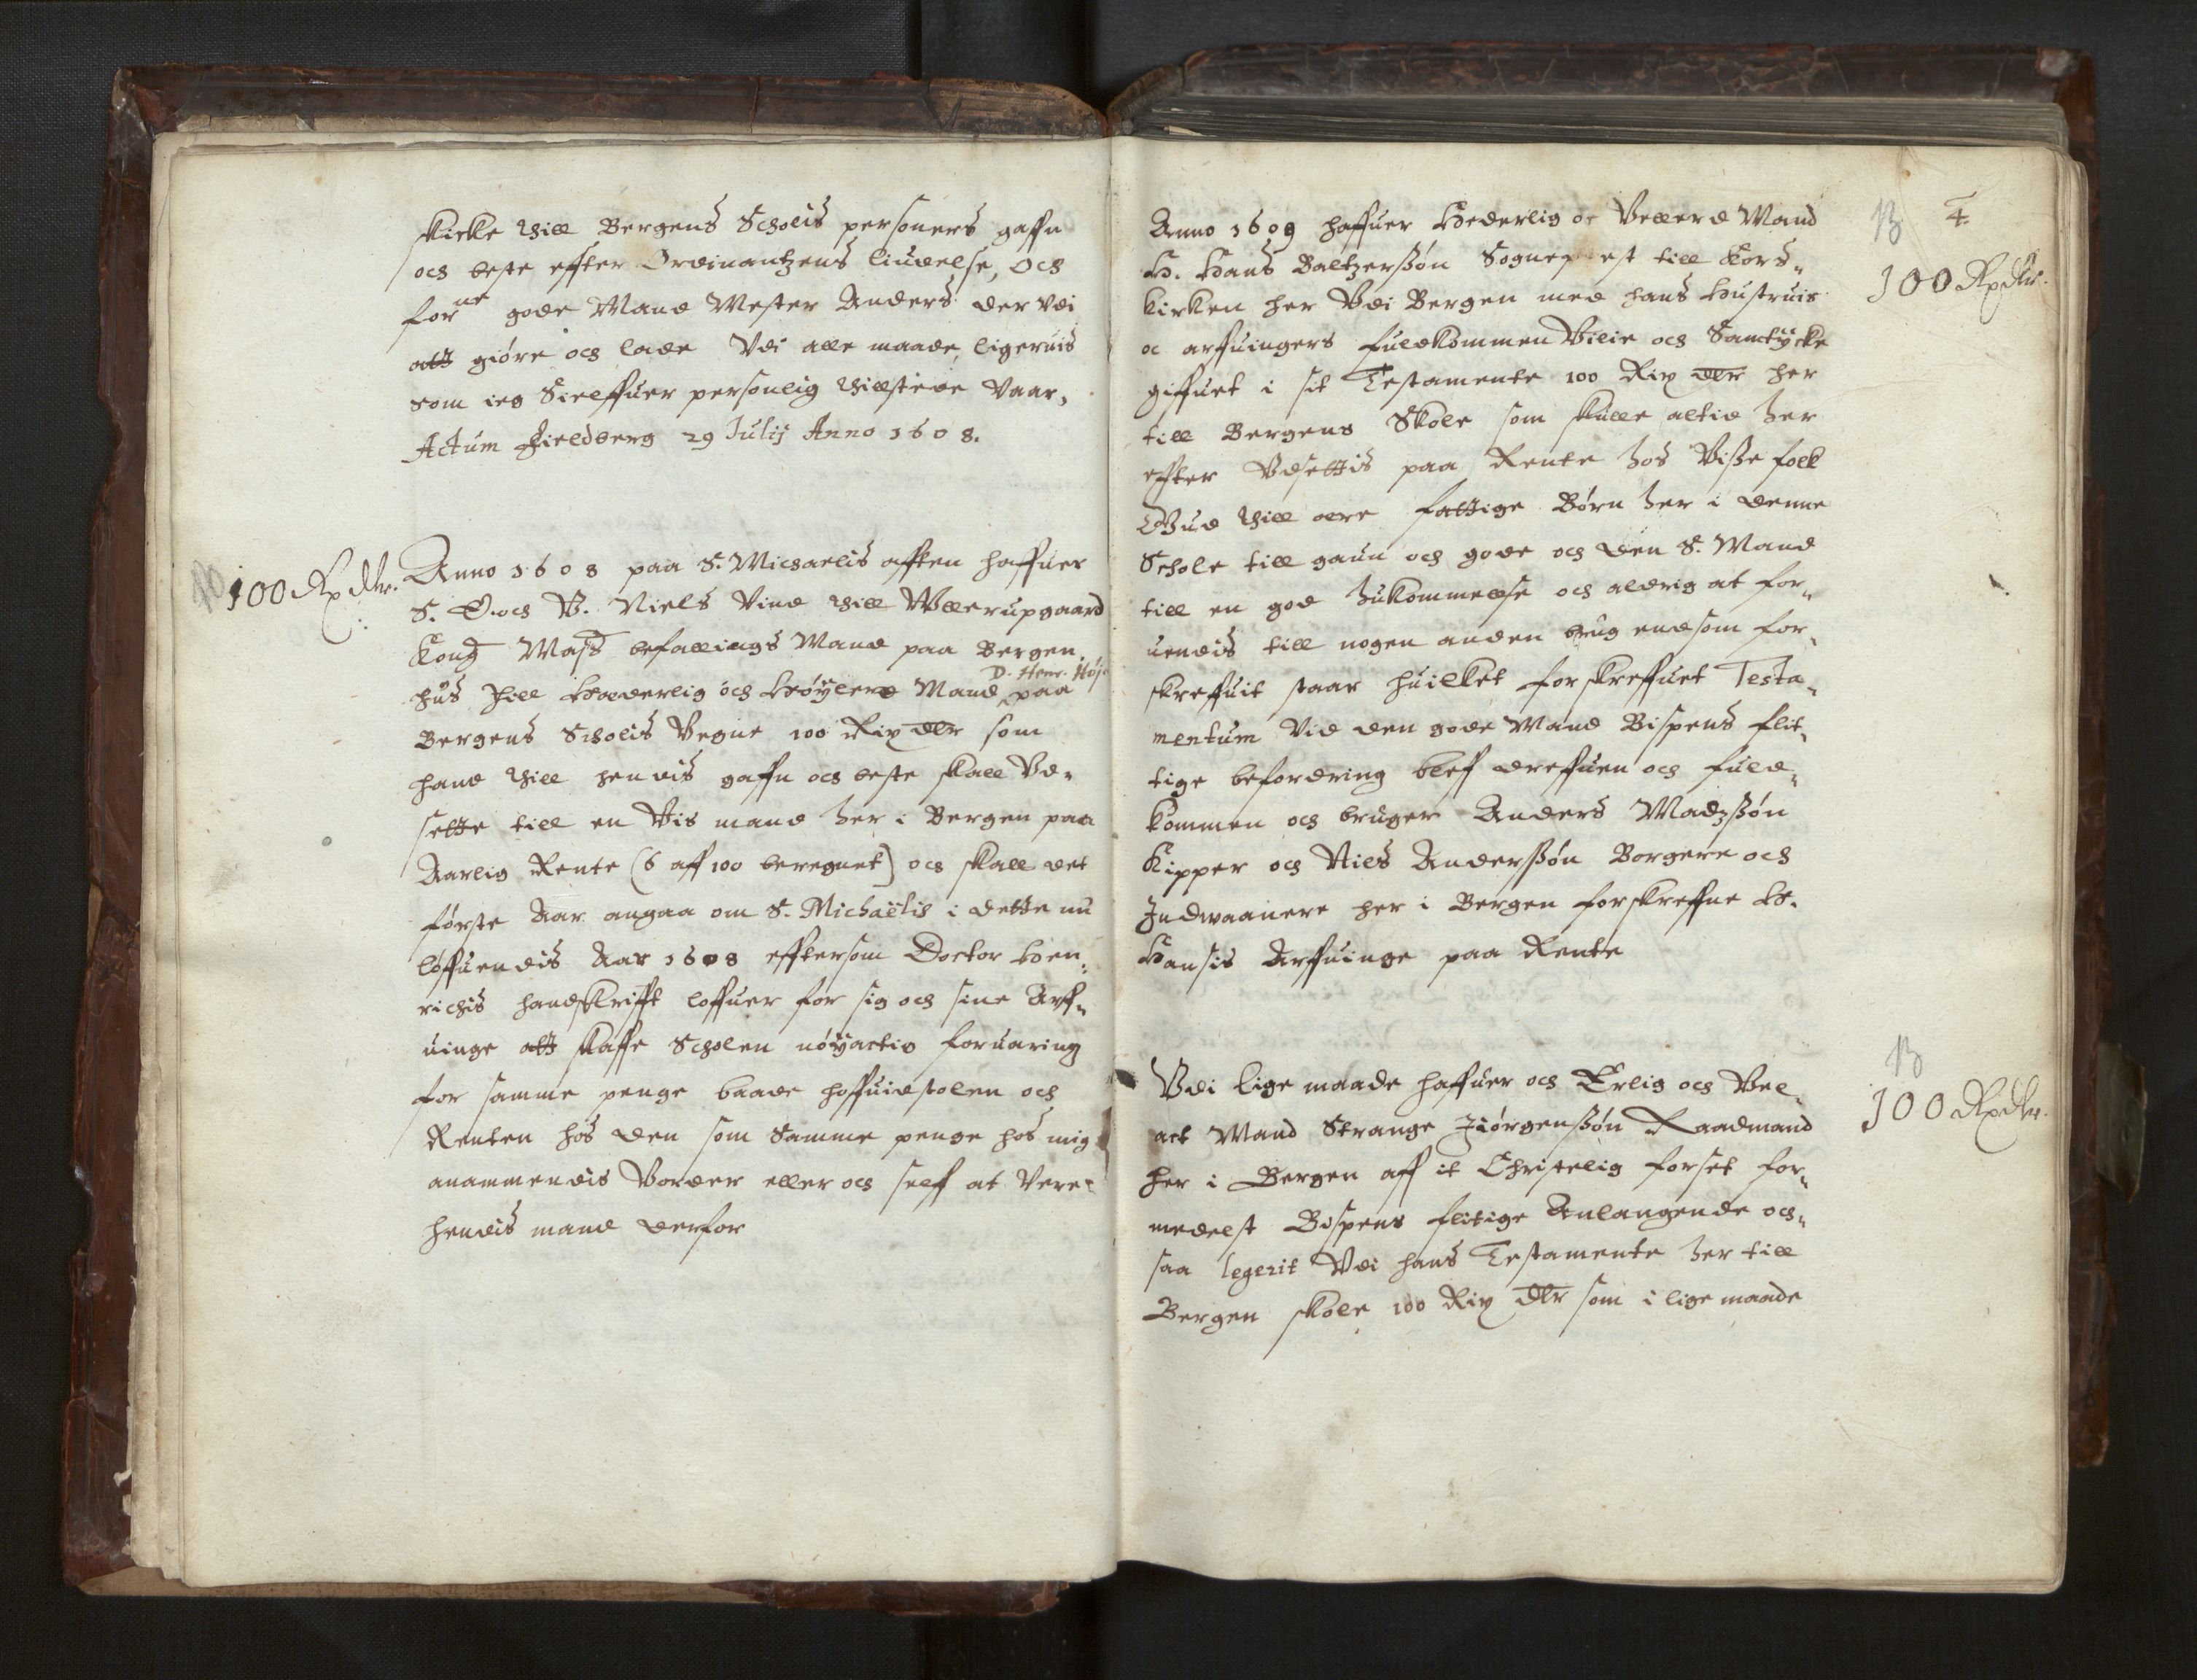 skicke till Bergens Scholis personers gaffn
och beste effter Ordinantzens liudelse, Och
forne gode Mand Mester Anders der vdi
att giöre och lade Vdi alle maade, ligeruis
som ieg Sielffuer personlig tillstede Vaar,
Actum Fieldberg 29 Julij Anno 1608.
100 Rxdlr.
Anno 1608 paa S. Michaelis afften haffuer
S. E. och V. Niels Vind till Ullerupgaard
Kong Majs befallings Mand paa Bergen,
D. Henr. Höje
hus till Hæderlig och Höylerd Mand paa
Bergens Scholis Vegne 100 Rix dlr som
hand till hendis gaffn och beste skall Vd-
sette till en Vis mand her i Bergen paa
Aarlig Rente (6 aff 100 beregnet) och skall det
förste Aar angaa om S. Michaëlis i dette nu
löffuendis Aar 1608 effterson Doctor Hen-
richis handskrifft loffuer for sig och sine Arff-
uinge att skaffe Scholen nöyactig foruaring
for samme penge baade hoffuidstolen och
Renten hos den som Samme penge hos mig
anammendis Vorder eller och self at Vere
hendis mand derfor
4.
100 Rxdlr.
Anno 1609 haffuer Hederlig oc Vellerd Mand
H. Hans Baltzerßön Sognep est till Kors-
kirken her Vdi Bergen med hans Hustruis
oc arffuingers fuldkommen Vilie och Samtÿcke
giffuet i sit Testamente 100 Rix dlr her
till Bergens Skole som skulle altid her
effter Vdsettis paa Rente hos Viße folk
Gud till ære fattige Börn her i denne
Schole till gaun och gode och den S. Mand
till en god hukommelse och aldrig at for-
uendis till nogen anden brug end som for-
skreffuit staar huilket forskreffuet Testa-
mentum Vid den gode Mand Bispens flit-
tige befordring bleff dreffuen och fuld-
kommen och bruger Anders Madzßön
Kipper och Niels Anderßön Borgere och
Indwaanere her i Bergen forskreffne H.
Hansis Arffuinge paa Rente
100 Rxdlr.
Vdi lige maade haffuer och Erlig och Vel-
act Mand Strange Jörgenßön Raadmand
her i Bergen aff it Christelig forset for-
medelst Bispens flitige Anlangende och-
saa legerit Vdi hans Testamente her till
Bergen skole 100 Rix dlr som i lige maade